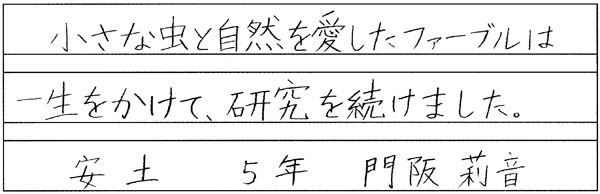 小さな虫と自然を愛したファーブルは
一生をかけて、研究を続けました。
安土 5年 門阪莉音